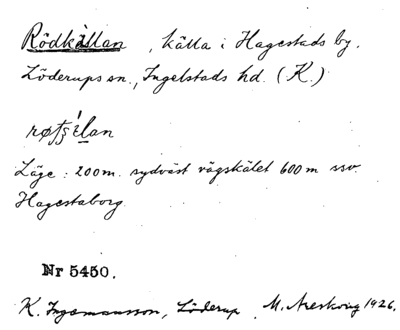 Rödkällan, källa i Hagestads by.
Löderups sn., Ingelstads hd. (K.)
Läge: 200 m. sydväst vägskälet 600 m ssv.
Hagestaborg
Nr 5450.
K. Ingemansson, Löderup. M. Areskoug 1926.